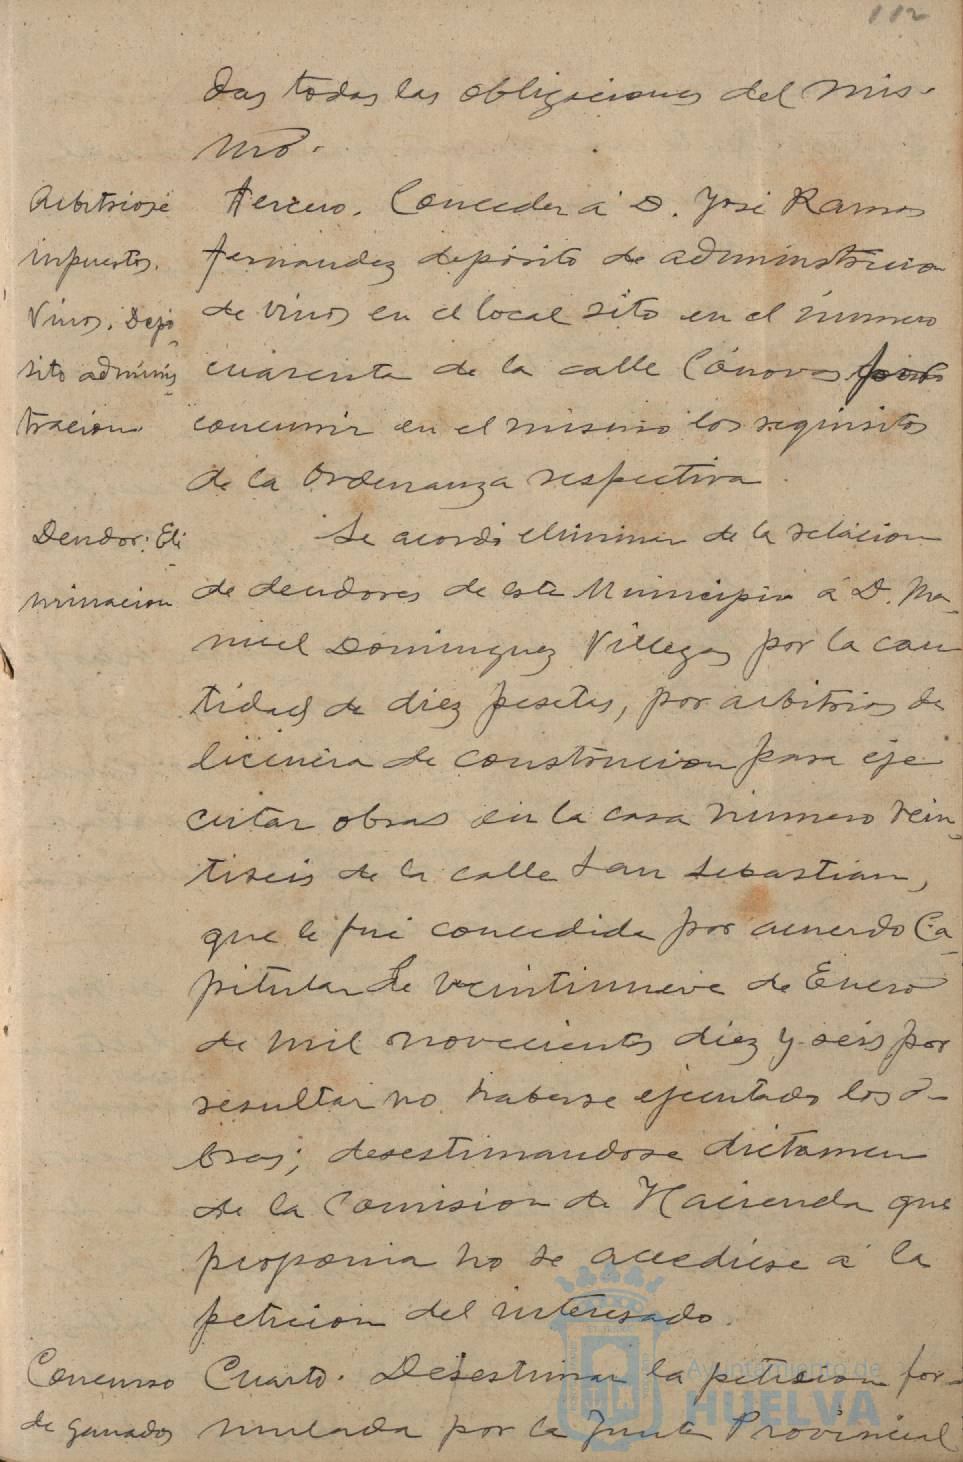 112
das todas las obligaciones del mis-
mo.
Arbitrios é
impuestos.
Vinos. Depó
sito adminis
tracion
Tercero. Conceder á D. José Ramos
Fernandez depósito de administracion
de vinos en el local sito en el número
cuarenta de la calle Cánovas por
concurrir en el mismo los requisitos
de la Ordenanza respectiva.
Deudor: Eli
minacion
Se acordó eliminar de la relacion
de deudores de este Municipio á D. Ma-
nuel Dominguez Villegas por la can
tidad de diez pesetas, por arbitrios de
licencia de construccion para eje
cutar obras en la casa número vein-
tiseis de la calle San Sebastian,
que le fué concedida por acuerdo Ca-
pitular de veintinueve de Enero
de mil novecientos diez y seis por
resultar no haberse ejecutado las o-
bras; desestimandose dictamen
de la Comision de Hacienda que
proponia no se accediese á la
peticion del interesado.
Concurso
de ganados
Cuarto. Desestimar la peticion for-
mulada por la Junta Provincial
Ayuntamiento de
HUELVA